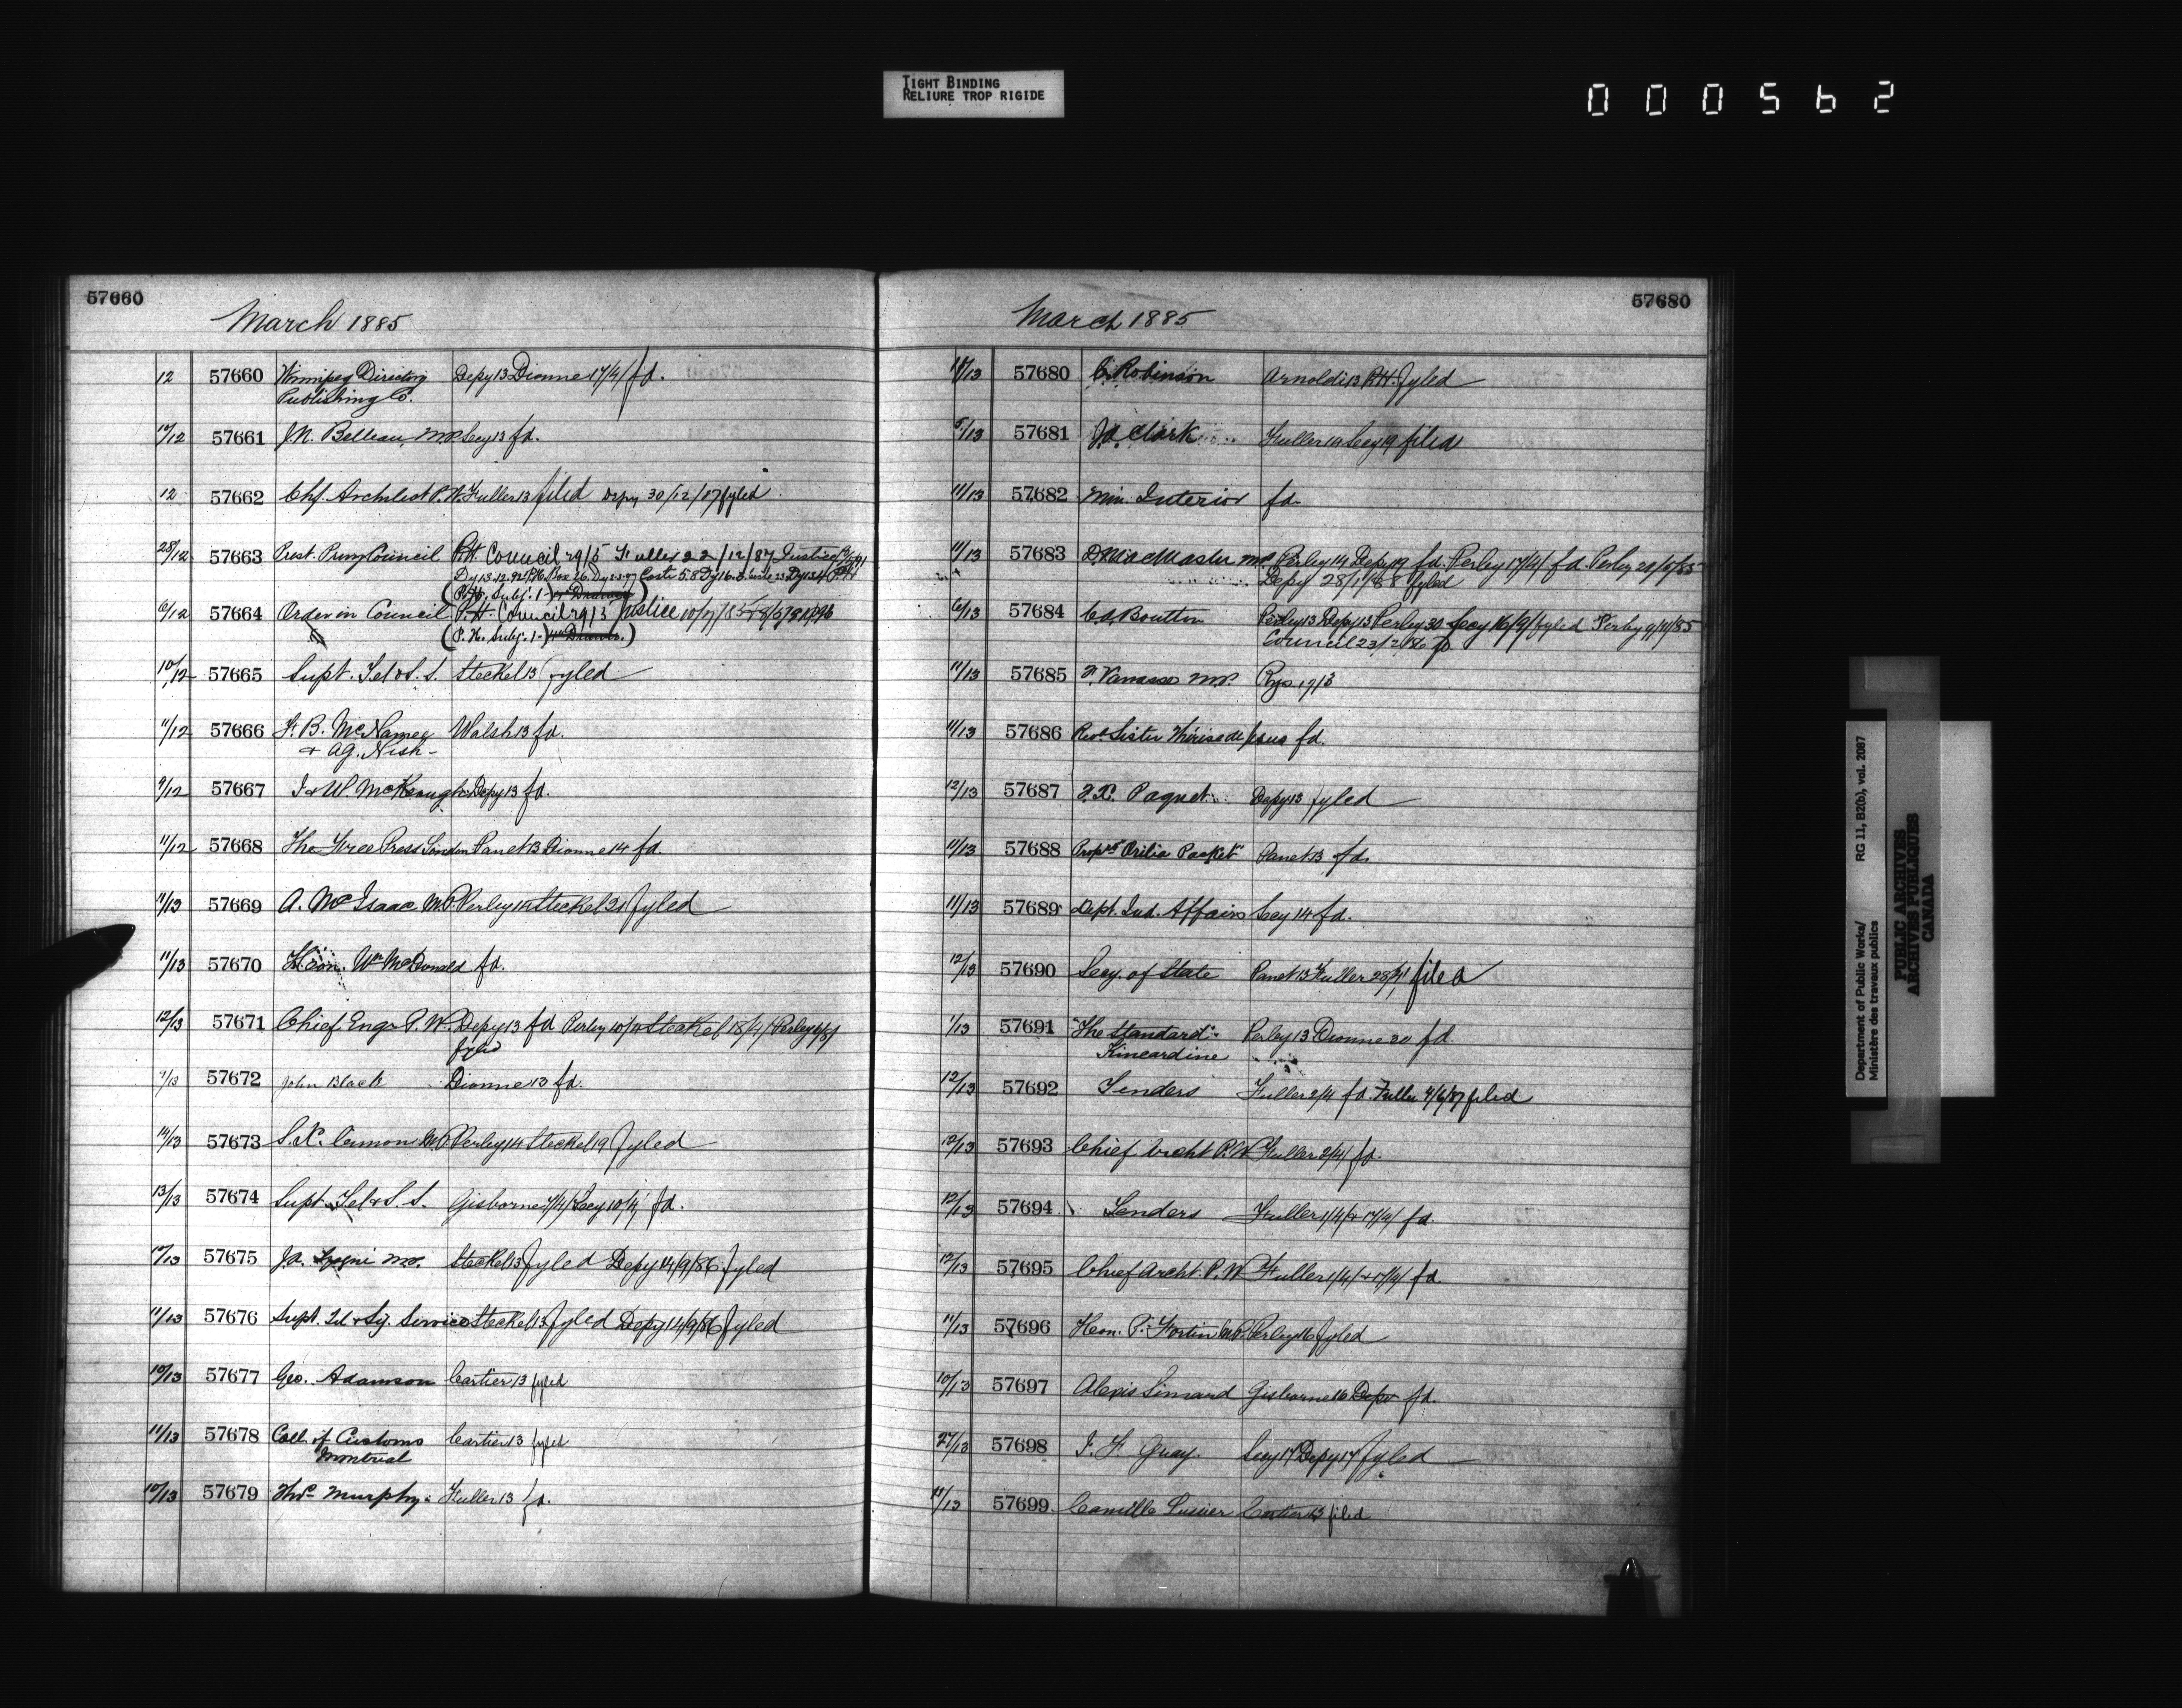 TIGHT BINDING
RELIURE TROP RIGIDE
000562
57660
March 1885
12 57660 Winnipeg Directory Depy 13 Dionne 17/4/ fd.
Publishing Co.
57661 J.N. Belleau, M.P. Secy 13 fd.
12 57662 Chf. Architect P.W. Fuller 13 filed Depy 30/12/87 fyled
28/12 57663 Prest. Privy Council P.H. Council 29/5 Fuller 22/12/87 Justice
(P.H. Subj. 1-
6/12 57664 Order in Council P.H. Council 29/3 Justice
(P.H. Subj. 1-
10/12 57665 Supt. Tel & S. S. Steckel 13 fyled
11/12 57666 F. B. McNamee Walsh 13 fd.
& A.G. Nish-
9/12 57667 J & W McKeough Depy 13 fd.
11/12 57668 The Free Press London Panet 13 Dionne 14 fd.
11/13 57669 A. McIsaac M.P. Perley 14 Steckel 21 fyled
11/13 57670 Hon. Wm McDonald fd.
12/13 57671 Chief Engr P. W. Depy 13 fd Perley 10/4 Steckel 18/4/ Perley
fyled
57672 John Black Dionne 13 fd.
57673 M.P. Perley 14 Steckel 19 fyled
13/13 57674 Supt. Tel & S. S. Gisborne 4/4/ Secy 10/4/ fd.
57675 M.P. Steckel 13 fyled Depy 14/9/86 fyled
11/13 57676 Supt. Tel & Sig. Service Steckel 13 fyled Depy 14/9/86 fyled
10/13 57677 Geo. Adamson Cartier 13 fyled
11/13 57678 Coll. of Customs Cartier 13 fyled
Montreal
10/13 57679 Thos. Murphy Fuller 13 fd.
57680
March 1885
57680 C. Robinson Arnoldi 13 P.H. fyled
5/13 57681 Jd. Clark Fuller 14 Secy 19 filed
11/13 57682 Min. Interior fd
11/13 57683 D. MacMaster M.P. Perley 14 Depy 19 fd. Perley 17/4/ fd. Perley
Depy 28/1/88 fyled
6/13 57684 C.A. Boutton Perley 13 Depy 13 Perley 30 Secy 16/9/ fyled Perley 9/11/85
Council 23/2/86
11/13 57685 F. Vanasse M.P. Rys 19/3
11/13 57686 Revd. Sister Thérèse de Jesus fd.
12/13 57687 F.X. Paquet Depy 13 fyled
11/13 57688 Proprs "Orilia Packet" Panet 13 fd.
11/13 57689 Dept. Ind. Affairs Secy 14 fd.
12/13 57690 Secy. of State Panet 13 Fuller 28/4/ filed
57691 "The Standard" Perley 13 Dionne 30 fd.
Kincardine
12/13 57692 Tenders Fuller 2/4 fd. Fuller 4/6/87 filed
12/13 57693 Chief Archt P.W. Fuller 2/4/ fd.
12/13 57694 Tenders Fuller 1/4/ & 17/4/ fd.
12/13 57695 Chief Archt. P.W. Fuller 1/4/ & 17/4/ fd.
11/13 57696 Hon. P. Fortin M.P. Perley 16 fyled
10/13 57697 Alexis Simard Gisborne 16 Depy fd.
27/13 57698 J. F. Guay. Secy 17 Depy 17 fyled
11/13 57699 Camille Lussier Cartier 13 filed
Department of Public Works/ RG 11, B2(b), vol. 2087
Ministère des travaux publics
PUBLIC ARCHIVES
ARCHIVES PUBLIQUES
CANADA